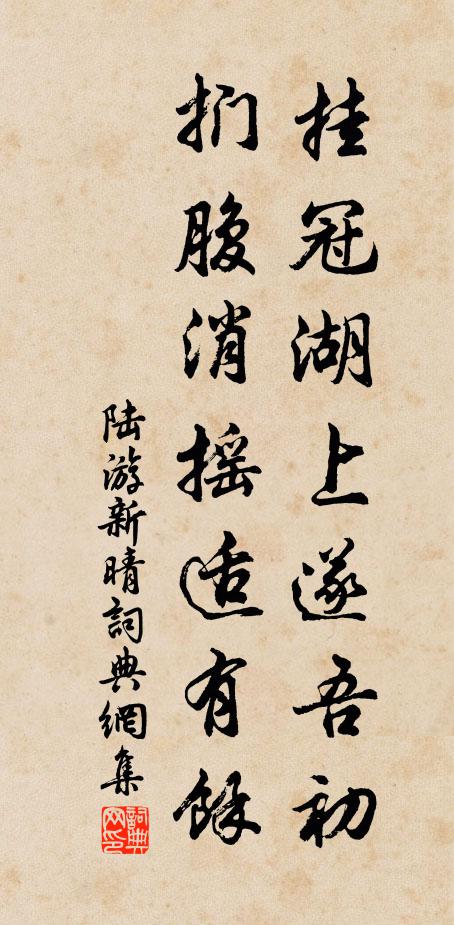 挂冠湖上遂吾初
捫腹消摇适有餘
陆游新晴詞典網集
詞典网印